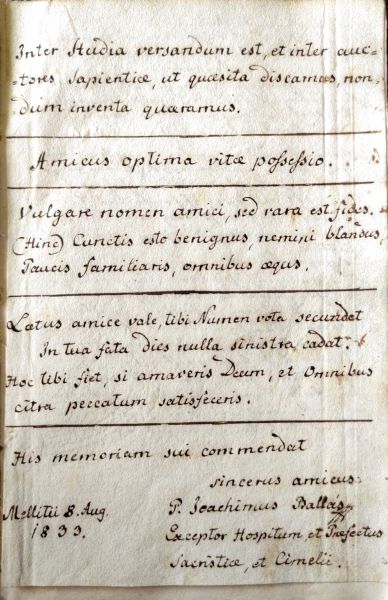 Inter Studia versandum est, et inter auc-
-tores Sapientiæ, ut quæsita discamus, non-
dum inventa quæramus.
Amicus optima vitæ possessio.
Vulgare nomen amici, sed rara est fides.
(Hinc) Cunctis esto benignus, nemini blandus,
Paucis familiaris, omnibus æqus.
Lætus amice vale, tibi Numen vota secundet
In tua fata dies nulla sinistra cadat.
Hoc tibi fiet, si amaveris Deum, et Omnibus
citra peccatum satisfeceris.
His memoriam sui commendat
sincerus amicus
Mellitii 8. Aug.
1833.
P. Joachimus Ballás
Exceptor Hospitum, et Præfectus
Sacristiæ, et Cimelii.